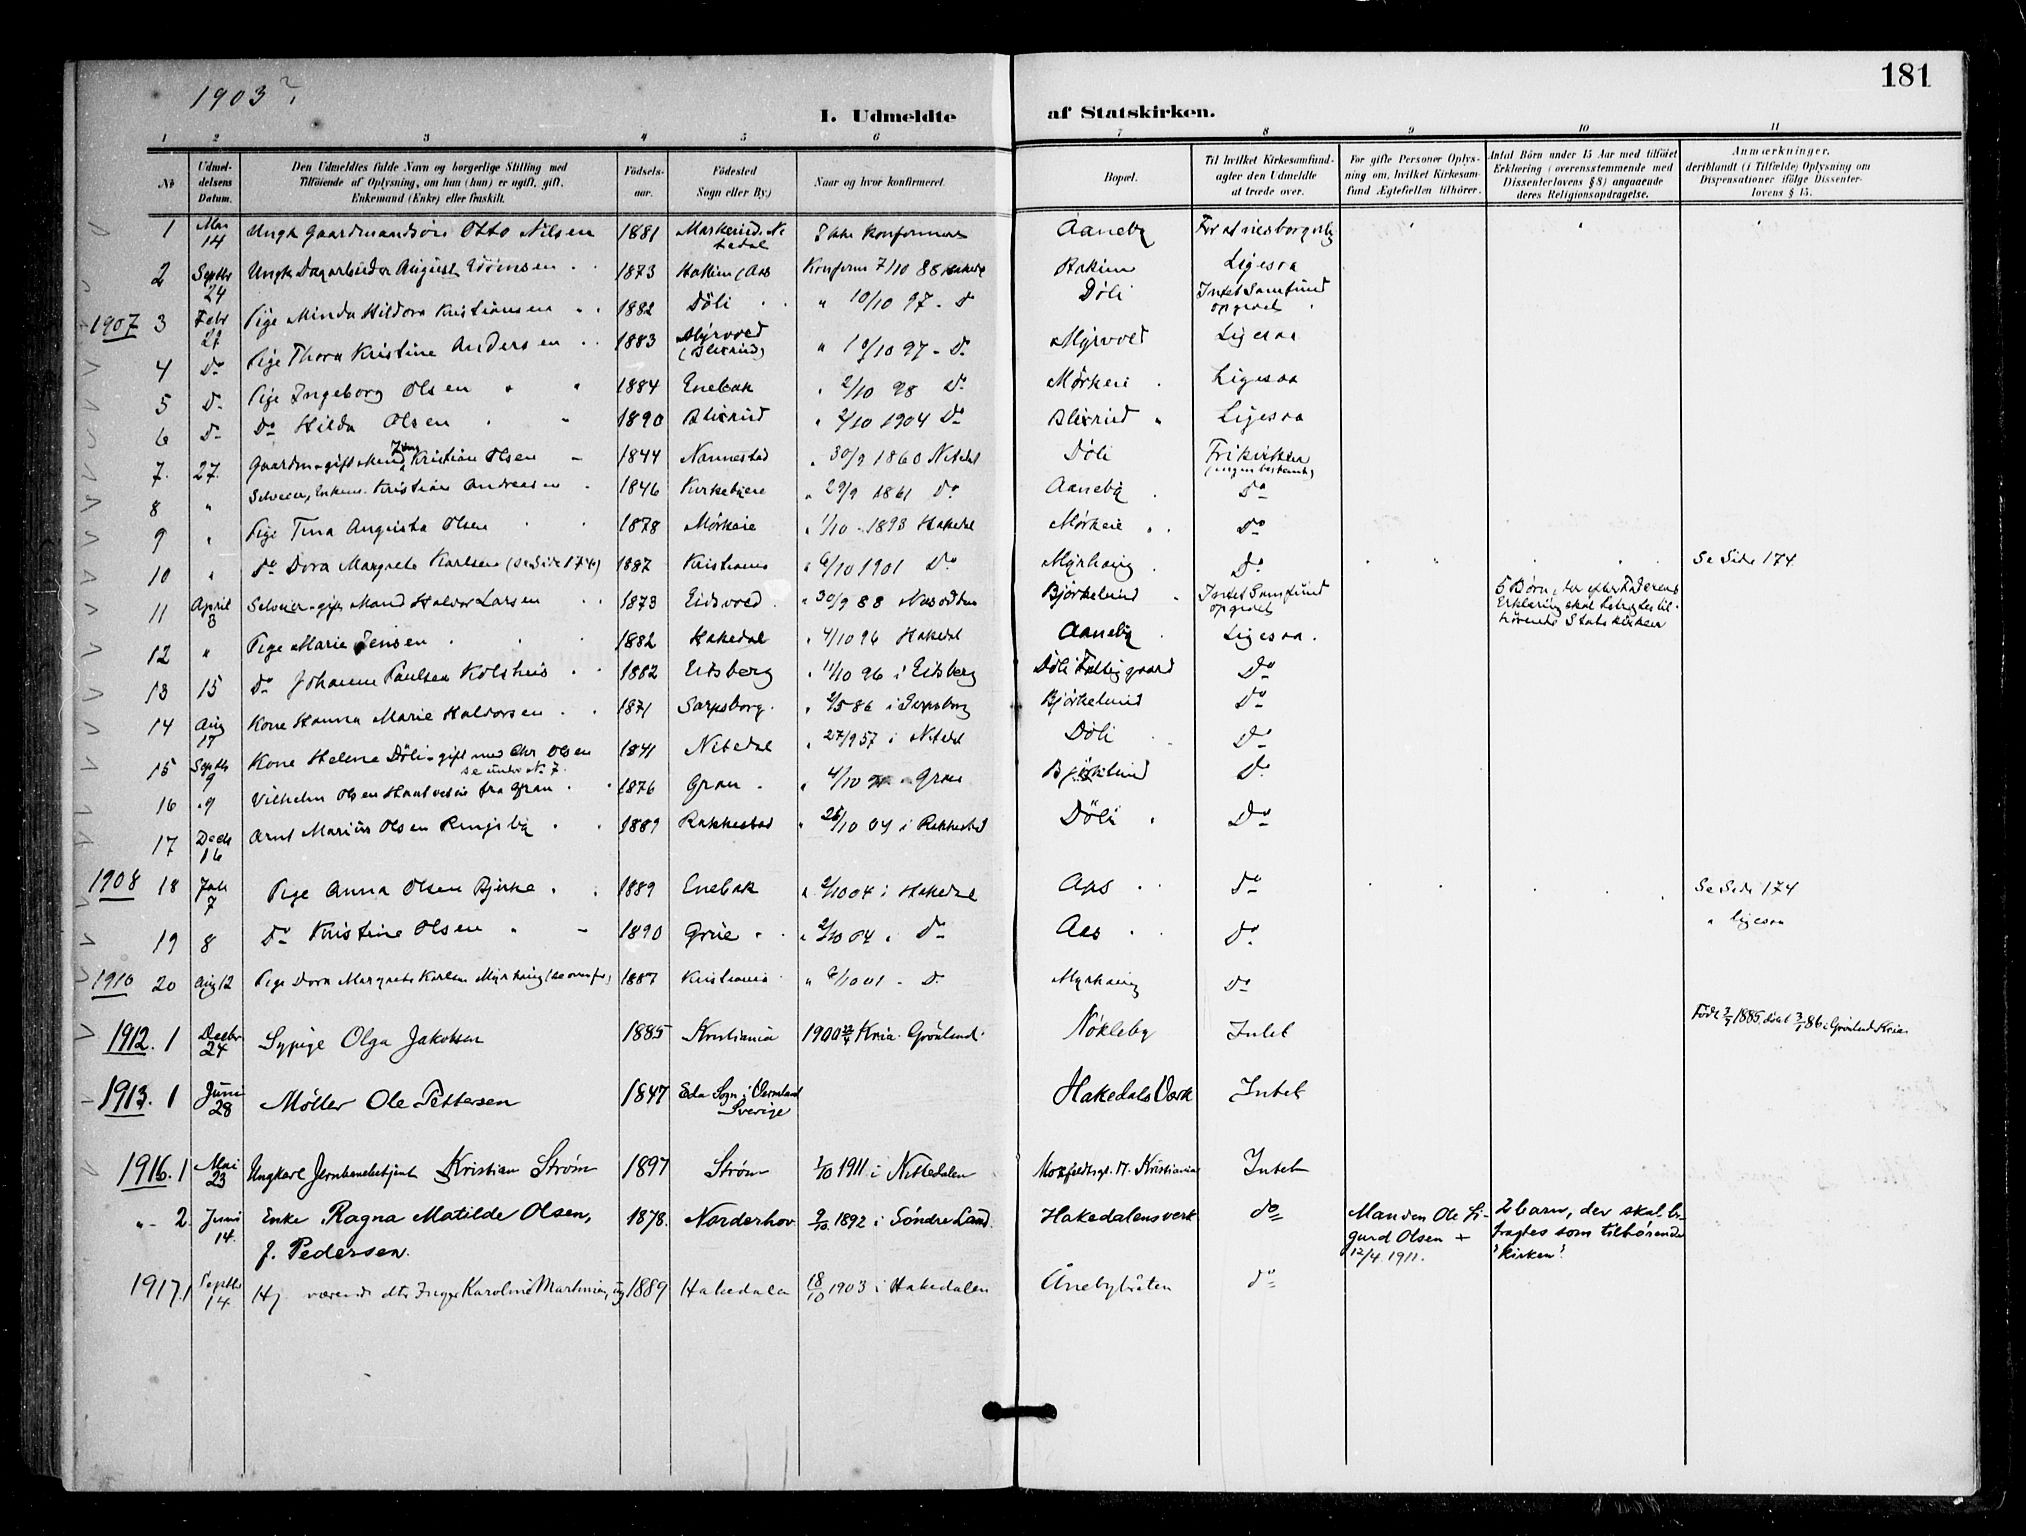 1903?
181
I. Udmeldte af Statskirken.
1 2 3 4 5 6 7 8 9 10 11
No
Udmel-
delsens
Datum.
Den Udmeldtes fulde Navn og borgerlige Stilling med
Tilföiende af Oplysning, om han (hun) er ugift, gift,
Enkemand (Enke) eller fraskilt.
Födsels-
aar.
Födested
Sogn eller By.)
Naar og hvor konfirmeret.
Bopæl.
Til hvilket Kirkesamfund-
agter den Udmeldte
at træde over.
For gifte Personer Oplys-
ning om, hvilket Kirkesam-
fund Ægtefællen tilhörer.
Antal Börn under 15 Aar med tilföiet
Erklæring (overensstemmende med
Dissenterlovens § 8) angaaende
deres Religionsopdragelse.
Anmærkninger,
deriblandt (i Tilfælde) Oplysning om
Dispensationer ifölge Dissenter-
lovens § 15.
1 Mai 14 Ungk Gaardmandsön Otto Nilsen 1881 Ikke konfirmeret Aaneby
2 Septbr 24 Ungk Dagarbeider August 1873 Konfirm 7/10 88 Hakedl Ligesaa
1907 3 Febr 27 Pige Minda Hildora Kristiansen 1882 Döli " 10/10 97 - Do Döli Intet Samfund
opgivet
4 Do Pige Thora Kristine Andersen 1883 Myrvold
(Blixrud) " 10/10 97 - Do Myrvold Ligesaa
5 Do Pige Ingeborg Olsen 1884 Enebak " 2/10 98 Do Ligesaa
6 Do Do Hilda Olsen 1890 Blixrud " 2/10 1904 Do Blixrud Ligesaa
7. 27. Gaardm - gift Mand Kristian Olsen 1844 Nannestad " 30/9 1860 Nitedl Döli Frikirken
(ingen bestemt)
8 " Selveier, Enkem. Kristian Andreasen 1846 " 29/9 1861 Do Aaneby Do
9 " Pige Tina Augusta Olsen 1878 " 1/10 - 1893 Hakedl Do
10 " Do Dora Margrete Karlsen (se Side 174) 1887 Kristiania " 6/10 1901 Do Myrhaug Do Se Side 174
11 April 3 Selveier - gift Mand Haldor Larsen 1873 Eidsvold " 30/9 88 Nesodden Intet Samfund
opgivet 5 Børn, der efter Faderens
Erklæring skal betragtes til-
hørende Statskirken
12 " Pige Marie Jensen 1882 Hakedal " 4/10 96 Hakedal Aaneby Ligesaa.
13 15 Do Johanne Paulsen 1882 Eidsberg " 11/10 96 i Eidsberg Döli Fattiggaard Do
14 Aug 17 Kone Hanna Marie Haldorsen 1871 Sarpsborg. 86 i Sarpsborg Do
15 Septbr 9 Kone Helene Döli - gift med Chr. Olsen
se under No 7. 1841 Nitedal " 27/9 57 i Nitedl Döli Do
16 9 Vilhelm Olsen fra Gran 1876 Gran " 4/10 Gran Do
17 Decb 16 Arnt Marius Olsen Ringsby 1889 Rakkestad " 04 i Rakkestad Döli Do
1908 18 7 Pige Anna Olsen Bjerke 1889 Enebak " 2/10 04 i Hakedal Aas Do Se Side 174
19 8 Do Kristine Olsen 1890 Grue " 2/10 04 Do Aas Do " ligesaa
1910 20 Aug 12 Pige Dora Margrete Karlsen Myrhaug 1887 Kristiania " 6/10 01 - Do Myrhaug Do
1912. 1 Decbr 24 Sypige Olga Jakobsen 1885 Kristiania 1900 Kria. Grønland. Nökleby Intet Født 1885, døbt 86 i Grønland Kria
1913. 1 Juni 28 Møller Ole Pettersen 1847 Eda Sogn i Vermland
Sverige Hakedals Værk Intet
1916. 1 Mai 23 Ungkarl Jernbanebetjent Kristian Strøm 1897 Strøm 1/10 1911 i Nittedalen Kristiania Intet
"- 2. Juni 14. Enke Ragna Matilde Olsen,
f. Pedersen. 1878. Norderhov 9/10 1892 i Søndre Land. Hakedalensverk do Manden Ole Si-
gurd Olsen +
12/4 1911. 2 barn, der skal be-
tragtes som tilhørende
"kirken".
1917. 1 Septbr 14 Karoline 1889 Hakedalen 18/10 1903 i Hakedalen Ånebybråten do